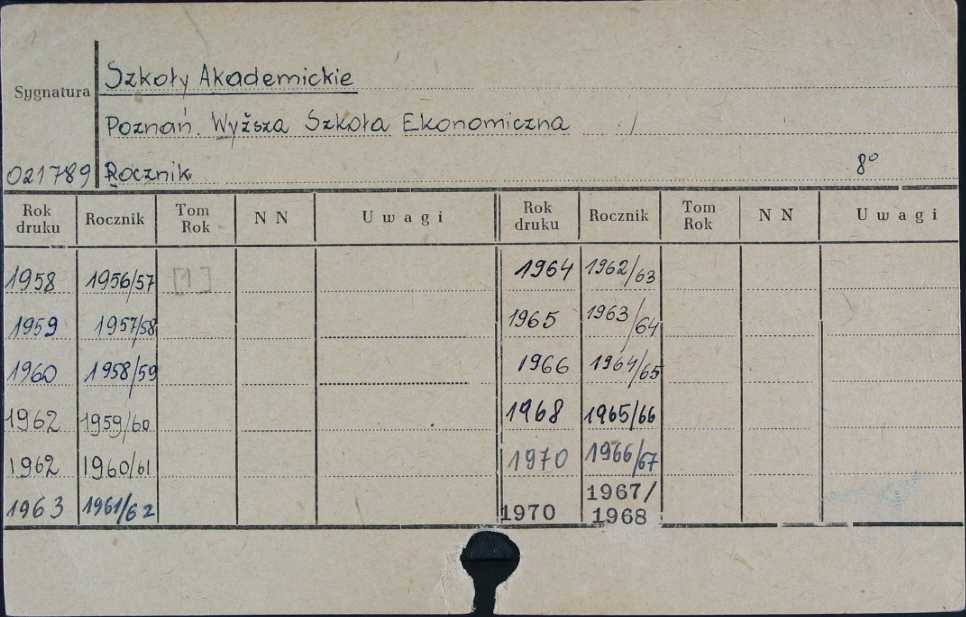 Szkoły Akademickie
Sygnatura
Poznań. Wyższa Szkoła Ekonomiczna
021789 Rocznik 8°
Rok druku Rocznik Tom Rok N N Uwagi Rok druku Rocznik Tom Rok N N Uwagi
1958 1956/57 [1] 1964 1962/63
1959 1957/58 1965 1963/64
1960 1958/59 1966 1964/65
1962 1959/60 1968 1965/66
1962 1960/61 1970 1966/67
1963 1961/62 1970 1967/1968